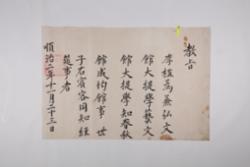 教旨
李植爲兼弘文
館大提學藝文
館大提學知春秋
館成均館事世
子右賓客同知經
筵事者
順治二年十一月二十三日